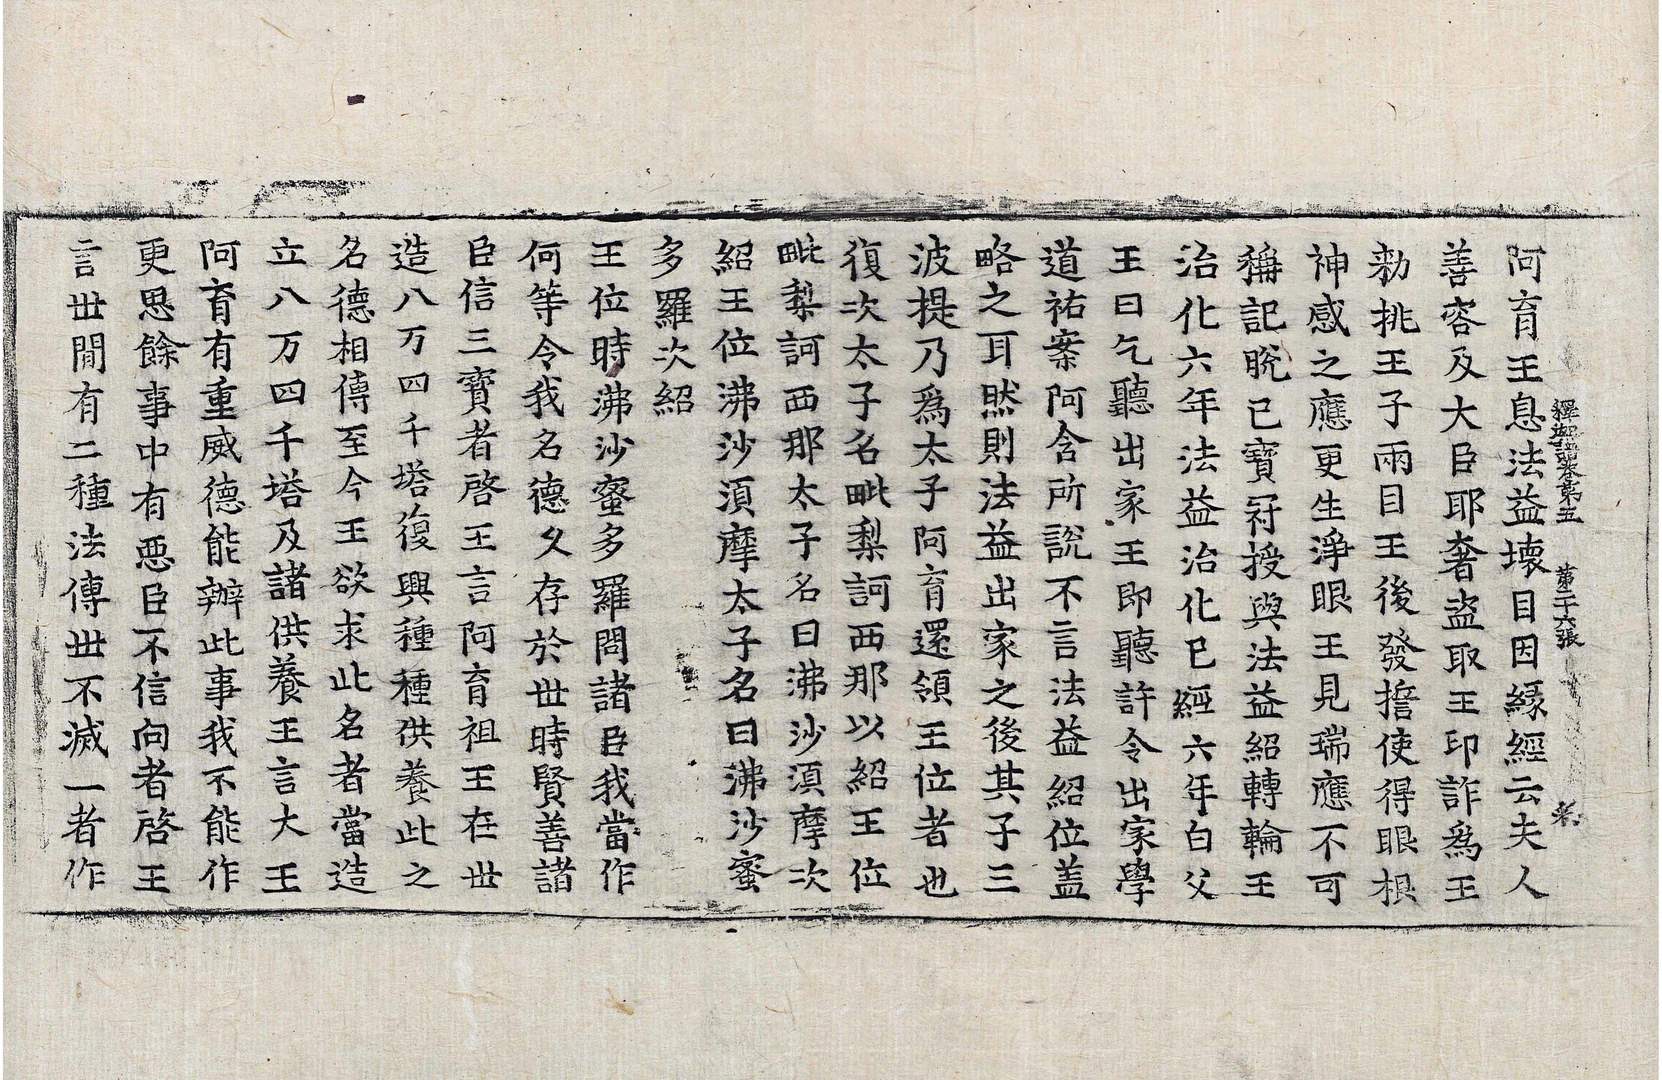 釋迦譜卷第五　第二十六張
阿育王息法益壞目因緣經云夫人
善容及大臣耶奢盗取王印詐爲王
勑挑王子兩目王後發擔使得眼根
神感之應更生淨眼王見瑞應不可
稱記脫已寶冠授與法益紹轉輪王
治化六年法益治化已經六年白父
王曰乞聽出家王即聽許令出家學
道祐案阿含所說不言法益紹位盖
略之耳然則法益出家之後其子三
波提乃爲太子阿育還領王位者也
復次太子名毗梨訶西那以紹王位
毗梨訶西那太子名曰沸沙須摩次
紹王位沸沙須摩太子名曰沸沙蜜
多羅次紹
王位時沸沙蜜多羅問諸臣我當作
何等令我名德久存於世時賢善諸
臣信三寶者啓王言阿育祖王在世
造八万四千塔復興種種供養此之
名德相傳至今王欲求此名者當造
立八万四千塔及諸供養王言大王
阿育有重威德能辦此事我不能作
更思餘事中有惡臣不信向者啓王
言世間有二種法傳世不滅一者作